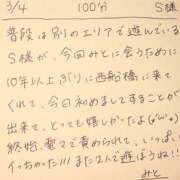 3/4 100分 S様
普段は別のエリアで遊んでいる
S様が、今回みとに会うために
10年以上ぶりに西船橋に来て
くれて、今回初めましてすることが
出来て、とっても嬉しかったよ(^o^)
終始、愛で責められて、いっぱい
イッちゃた!!! また2人で遊ぼうね!!
みと